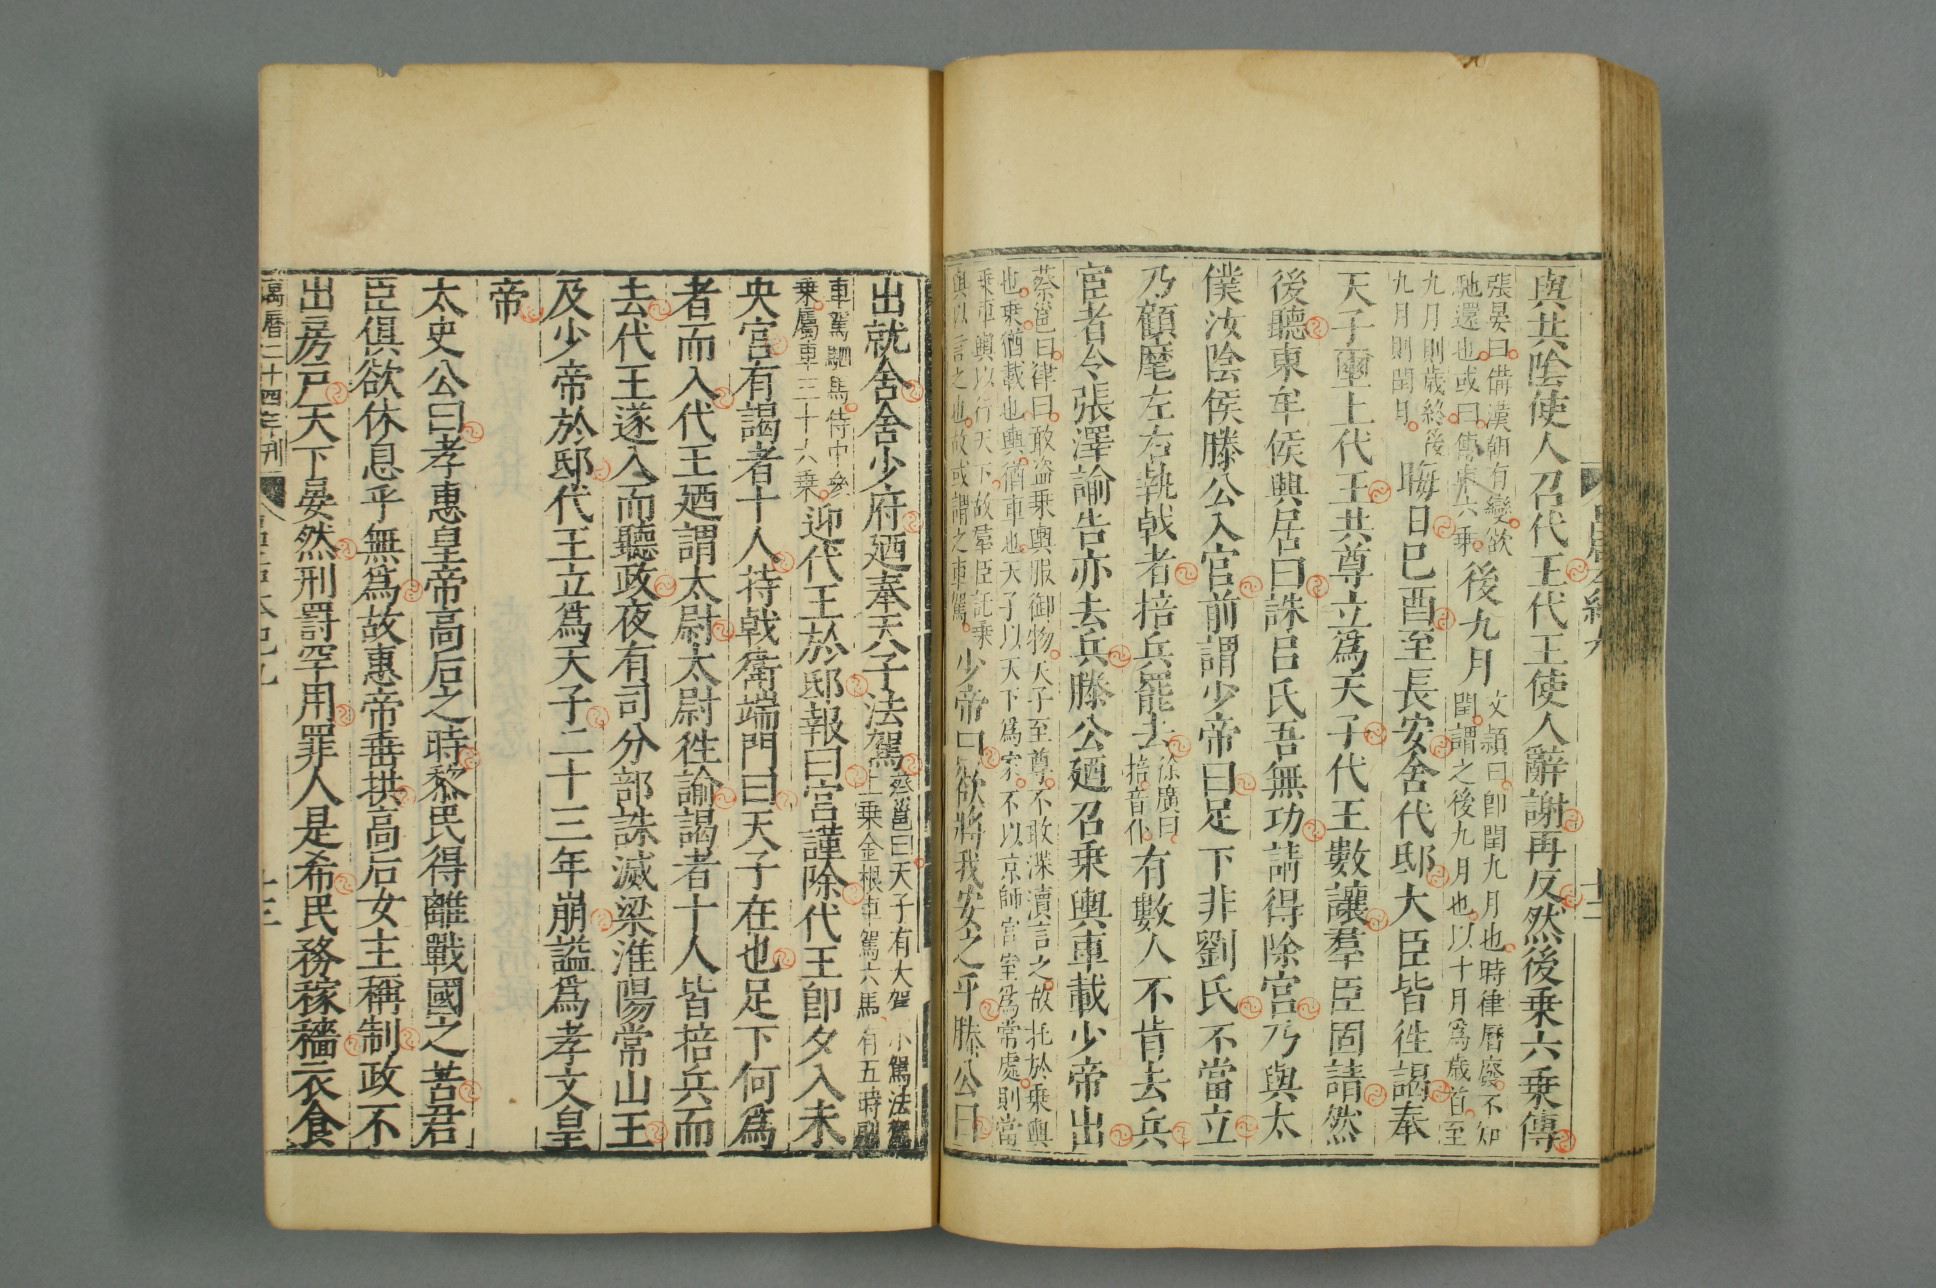 與共陰使人召代王代王使人辭謝再反然後乗六乗傳
張晏曰備漢朝有變欲
馳還也或曰傳車六乗
後九月
文頴曰卽閏九月也時律曆廢不知
閏謂之後九月也以十月爲歳首至
九月則歳終後
九月則閏月
晦日己酉至長安舍代邸大臣皆徃謁奉
天子璽上代王共尊立爲天子代王數讓羣臣固請然
後聽東牟侯興居曰誅吕氏吾無功請得除宫乃與太
僕汝陰侯滕公入宫前謂少帝曰足下非劉氏不當立
乃顧麾左右執戟者掊兵罷去
徐廣曰
掊音仆
有數人不肯去兵
宦者令張澤諭告亦去兵滕公廼召乗輿車載少帝出
蔡邕曰律曰敢盜乗輿服御物天子至尊不敢渫瀆言之故托於乗輿
也乗猶載也輿猶車也天子以天下爲家不以京師宫室爲常處則當
乗車輿以行天下故羣臣託乗
輿以言之也故或謂之車駕
少帝曰欲將我安之乎滕公曰
出就舍舍少府廼奉天子法駕
蔡邕曰天子有大駕小駕法駕
上乗金根車駕六馬有五時副
車駕駟馬侍中參
乗屬車三十六乗
迎代王於邸報曰宫謹除代王卽夕入未
央宫有謁者十人持戟衛端門曰天子在也足下何爲
者而入代王廼謂太尉太尉徃諭謁者十人皆掊兵而
去代王遂入而聽政夜有司分部誅滅梁淮陽常山王
及少帝於邸代王立爲天子二十三年崩謚爲孝文皇
帝
太史公曰孝惠皇帝高后之時黎民得離戰國之苦君
臣俱欲休息乎無爲故惠帝垂拱高后女主稱制政不
出房戸天下晏然刑罰罕用罪人是希民務稼穡衣食
萬曆二十四年刊
十三